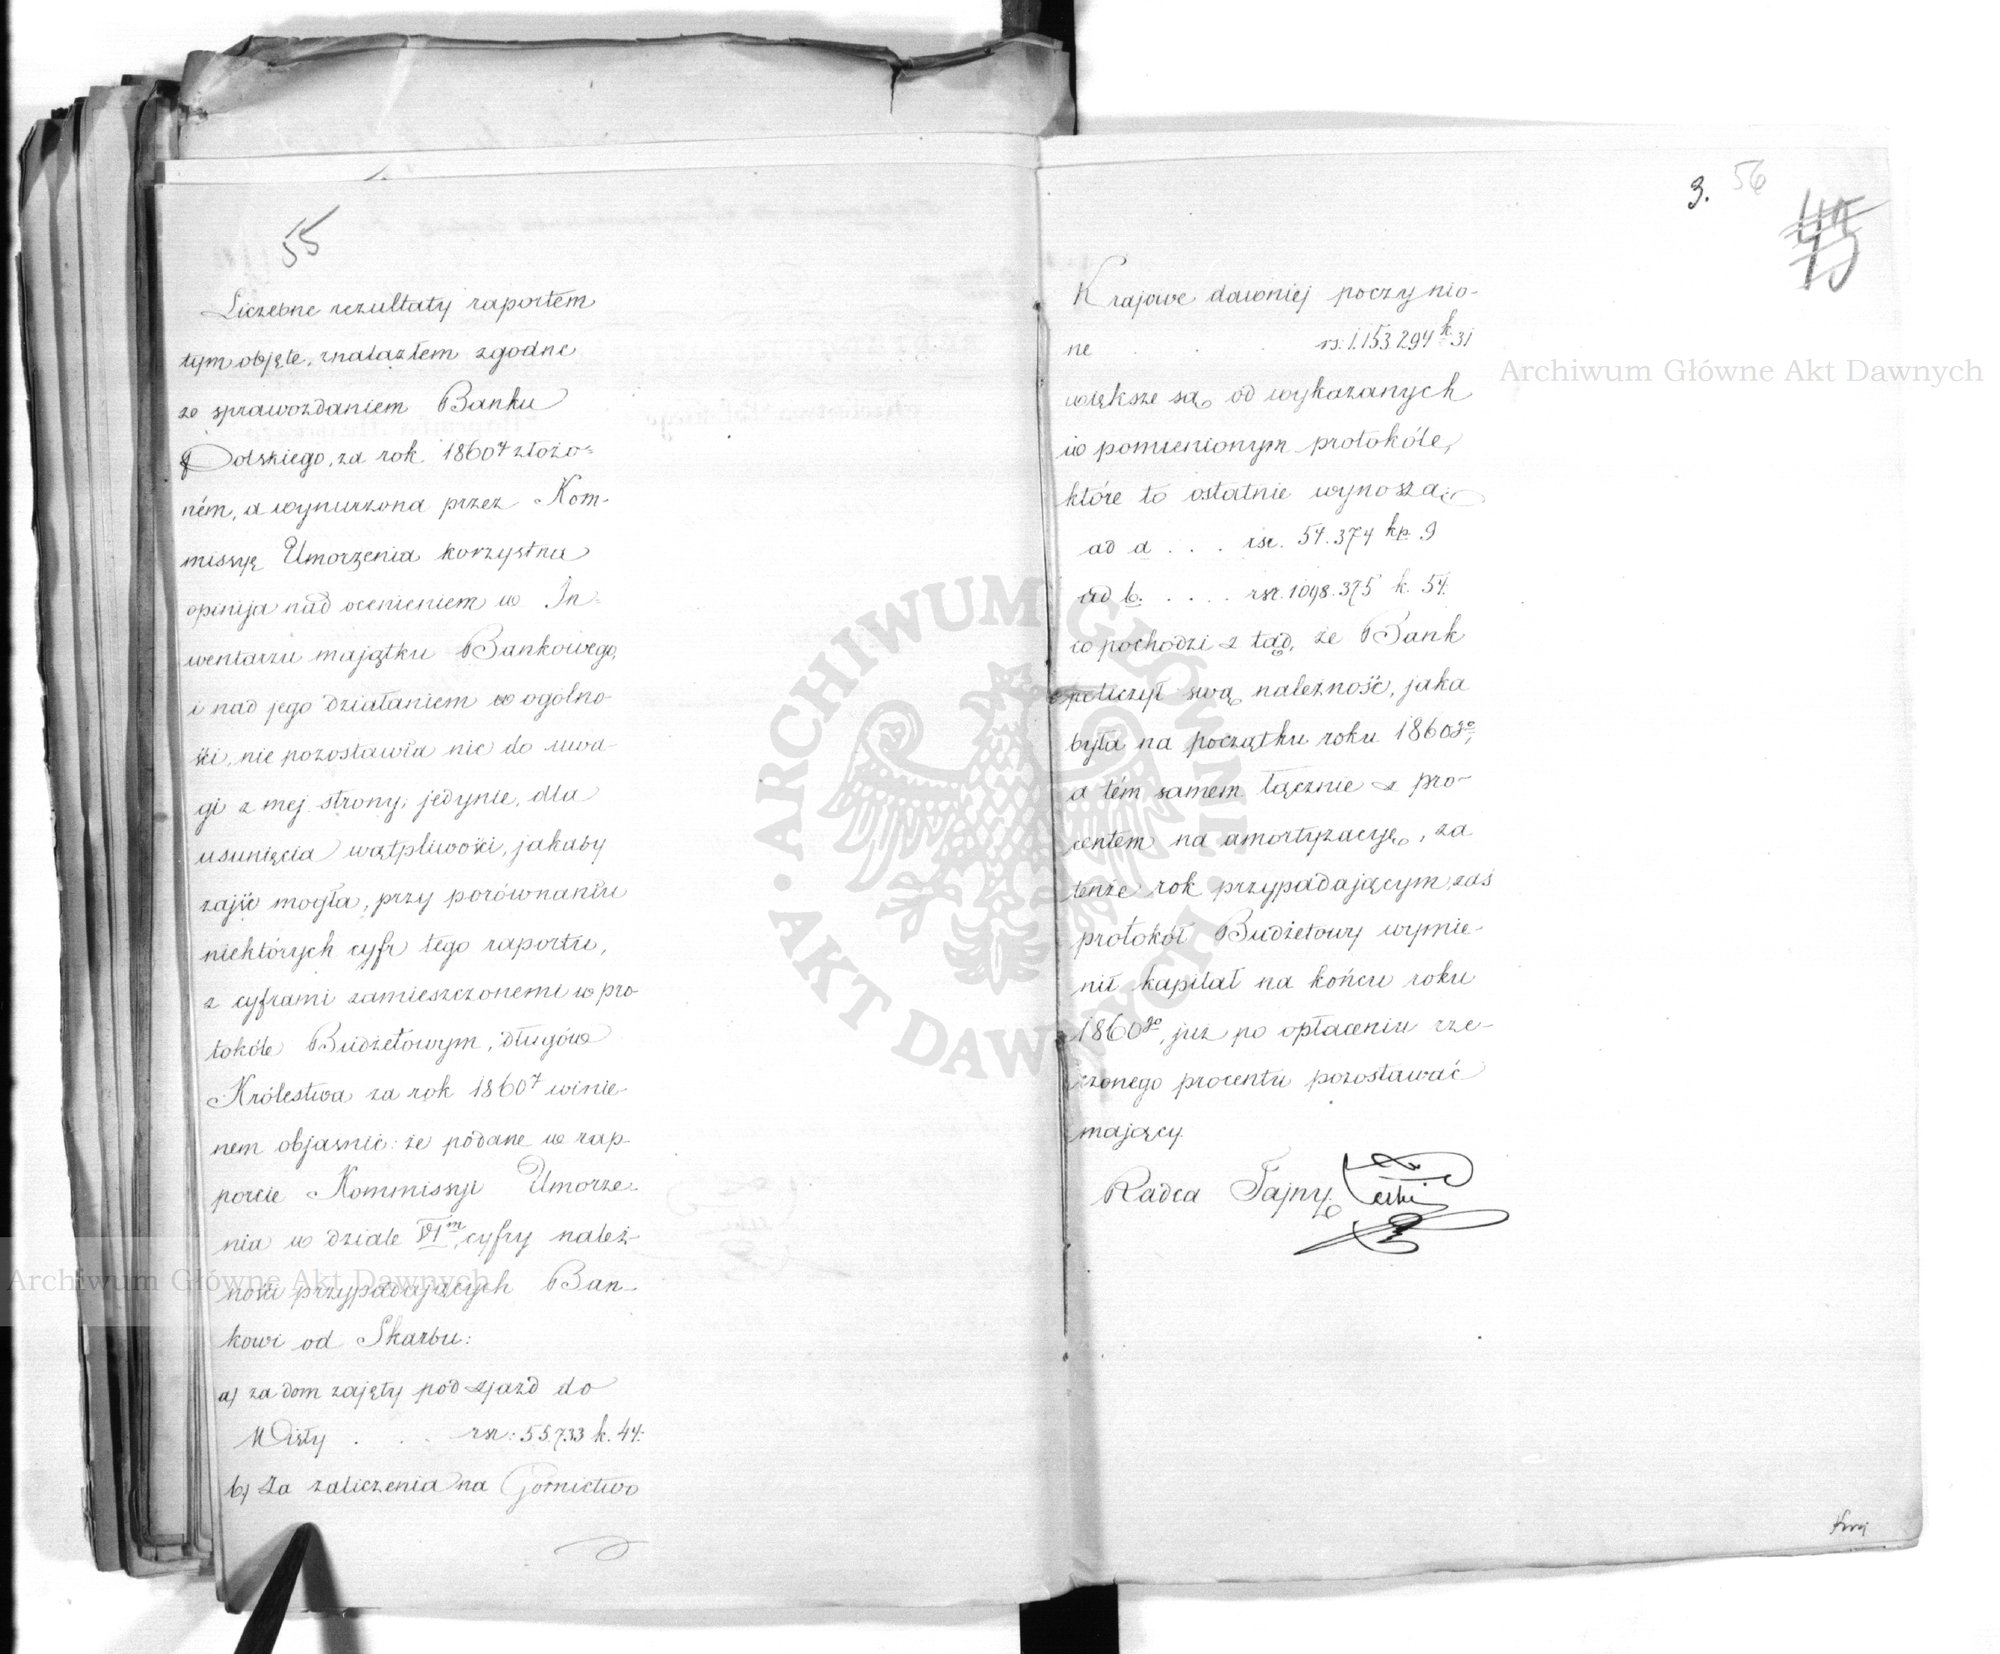 55
Liczebne rezultaty raportem
tym objęte, znalazłem zgodne
ze sprawozdaniem Banku
Polskiego, za rok 1860ty złożo-
ném, a wynurzona przez Kom-
missyę Umorzenia korzystna
opinija nad ocenieniem w In-
wentarzu majątku Bankowego,
i nad jego działaniem w ogólno-
ści, nie pozostawia nic do uwa-
gi z mej strony; jedynie, dla
usunięcia wątpliwości, jakaby
zajść mogła, przy porównaniu
niektórych cyfr tego raportu,
z cyframi zamieszczonemi w pro-
tokóle Budżetowym, długów
Królestwa za rok 1860ty winie-
nem objasnić: że podane w rap-
porcie Kommissyi Umorze-
nia w dziale VIm, cyfry należ-
ności przypadających Ban-
kowi od Skarbu:
a) za dom zajęty pod zjazd do
Wisły . . . rsr: 55.733 k. 44:
b) Za zaliczenia na Górnictwo
3. 56
45
Krajowe dawniej poczynio-
ne . . rs: 1.153.294 k. 31
większe są, od wykazanych
w pomienionym protokóle,
które to ostatnie wynoszą:
ad a . . . rsr. 54.374 kp. 9
ad b. . . . . rsr. 1098.375 k. 54.
co pochodzi z tąd, że Bank
policzył swą należność, jaka
była na początku roku 1860go,
a tém samem łącznie z pro-
centem na amortyzacyę, za
tenże rok przypadającym, zaś
protokół Budżetowy wymie-
nił kapitał na końcu roku
1860go, już po opłaceniu rze-
czonego procentu pozostawać
mający.
Radca Tajny
Archiwum Główne Akt Dawnych
Archiwum Główne Akt Dawnych
ARCHIWUM GŁÓWNE • AKT DAWNYCH •